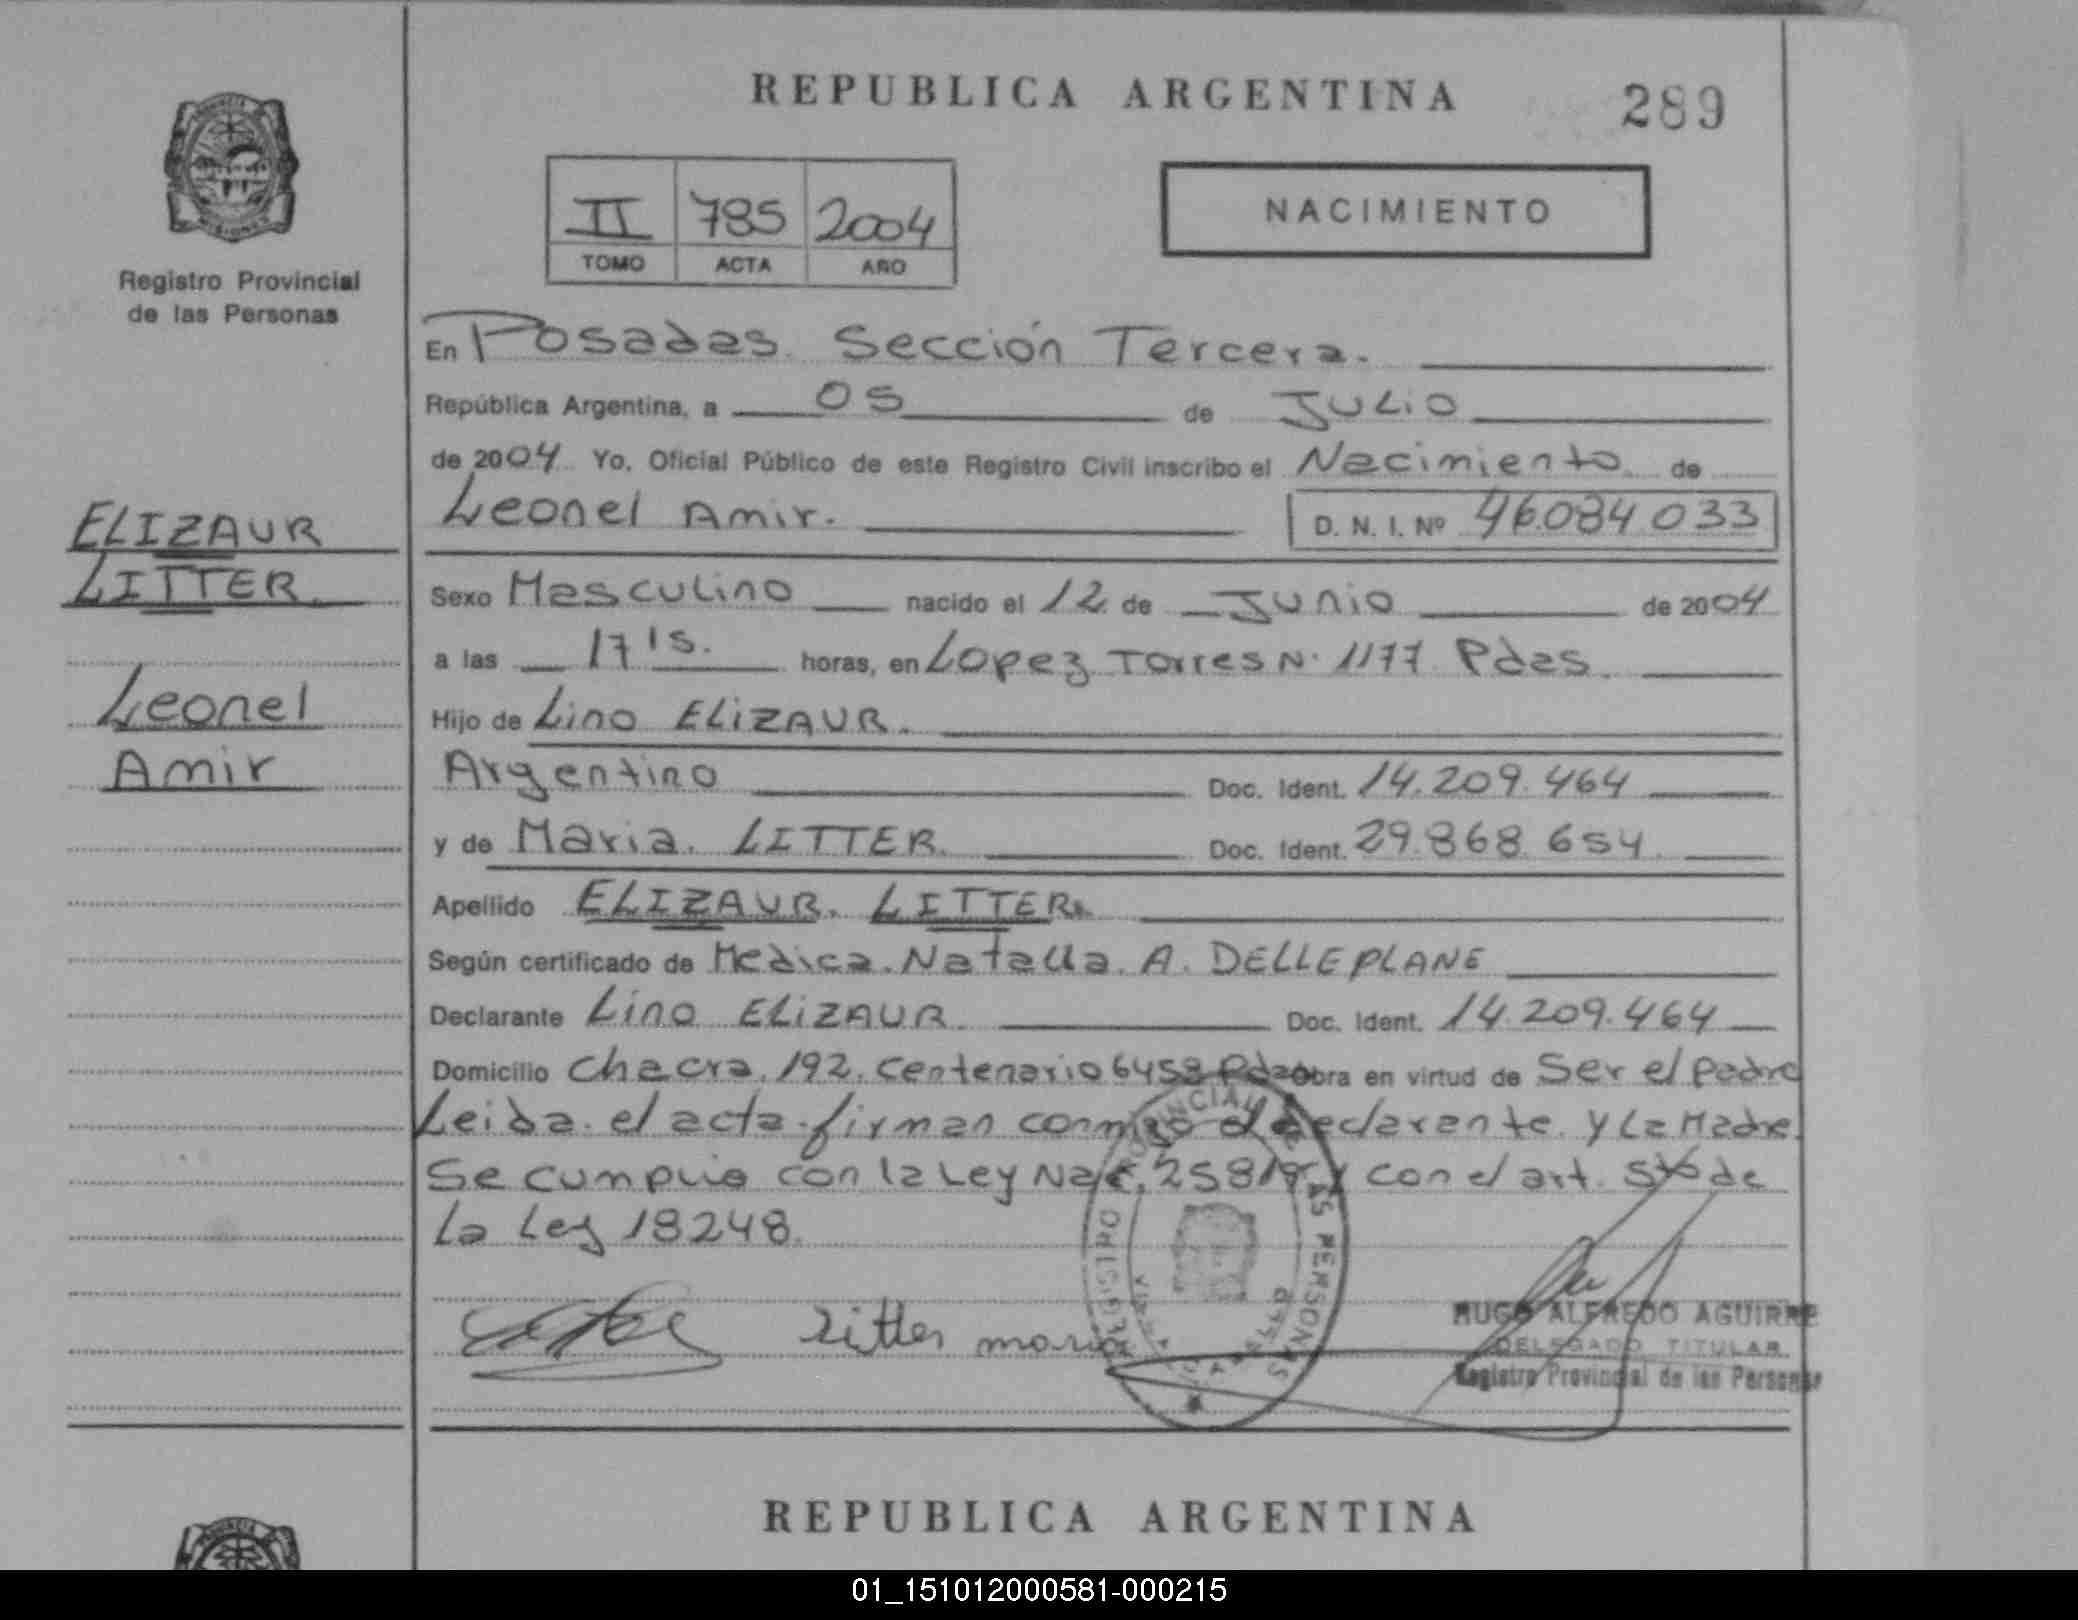 REPUBLICA ARGENTINA
289
II 785 2004
TOMO ACTA AÑO
NACIMIENTO
Registro Provincial
de las Personas
En Posadas. Sección Tercera.
República Argentina, a 05 de Julio
de 2004 Yo, Oficial Público de este Registro Civil inscribo el Nacimiento de
Leonel Amir. D. N. I. Nº 46.084 033
ELIZAUR
LITTER.
Leonel
Amir
Sexo Masculino nacido el 12 de Junio de 2004
a las 17 15. horas, en Lopez Torres N. 1177 Pdas.
Hijo de Lino ELIZAUR.
Argentino Doc. Ident. 14.209.464
y de Maria. LITTER. Doc. Ident. 29.868 654.
Apellido ELIZAUR. LITTER.
Según certificado de Medica. Natalia. A. DELLEPLANE
Declarante Lino ELIZAUR. Doc. Ident. 14.209.464
Domicilio Chacra. 192. Centenario 6458 Pdas obra en virtud de Ser el padre
Leida. el acta. firman conmigo el declarante. y La Madre.
Se cumplio con la Ley Nac. 25819 y con el art. 5to de
La Ley 18248.
Litter maria
REGISTRO PROVINCIAL DE LAS PERSONAS
HUGO ALFREDO AGUIRRE
DELEGADO TITULAR
Registro Provincial de las Personas
REPUBLICA ARGENTINA
01_151012000581-000215